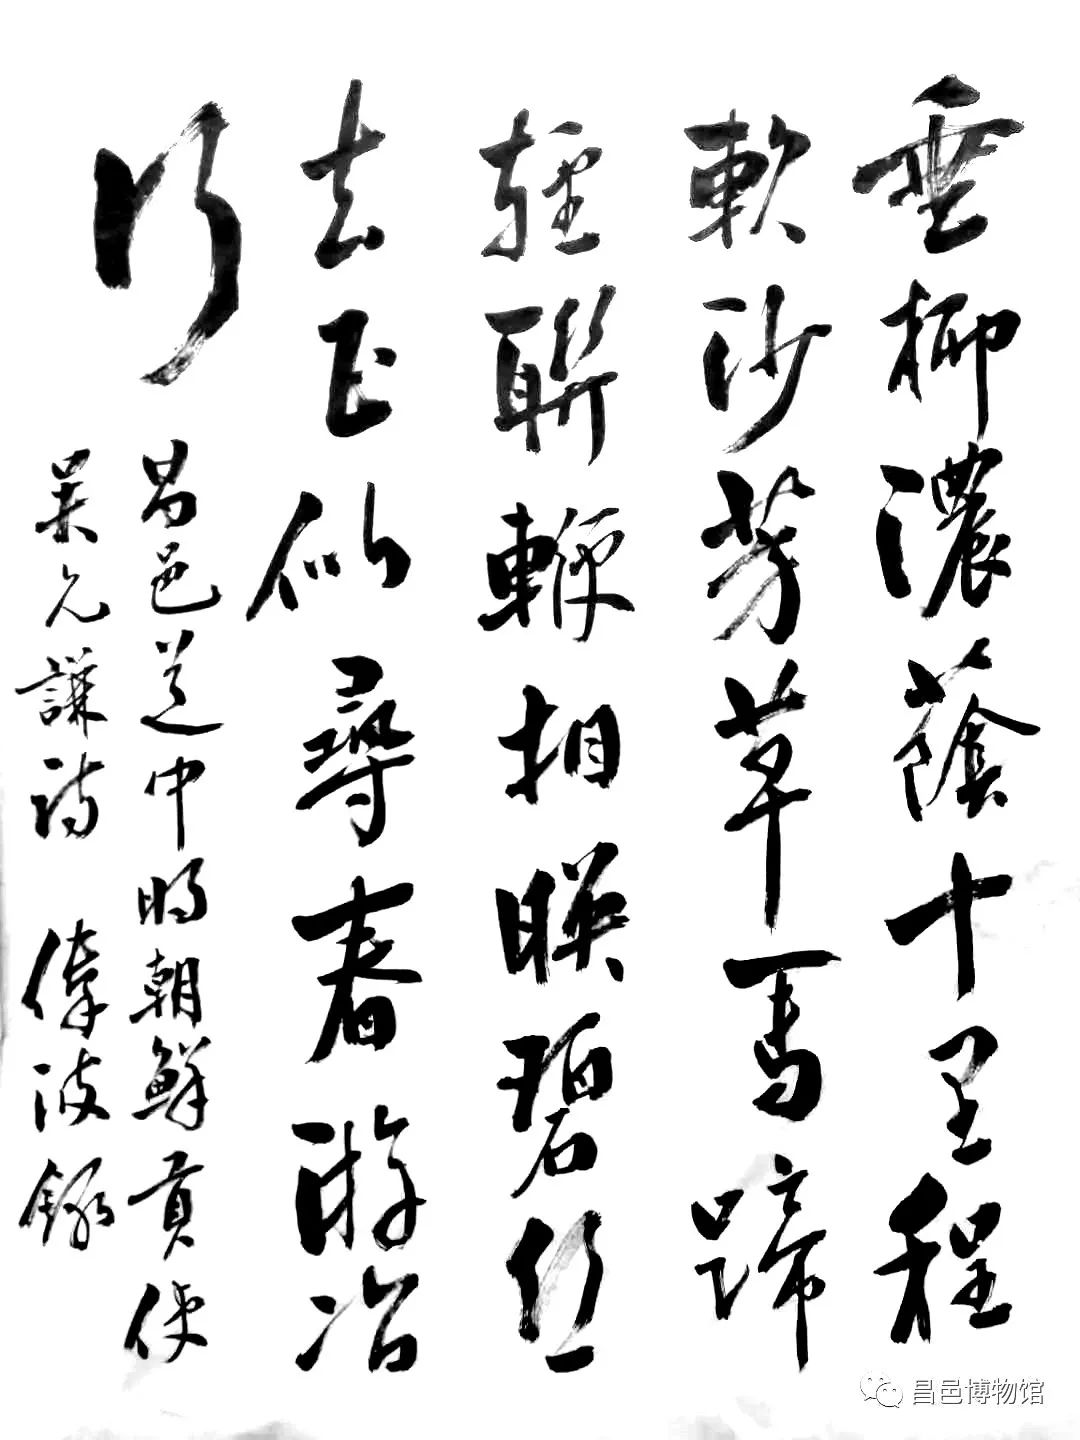 垂柳濃蔭十里程
軟沙芳草馬蹄
輕聯鞭相映碧丝
去正似尋春游冶
行
昌邑道中明朝鮮貢使
吴允謙詩 偉波錄
昌邑博物馆